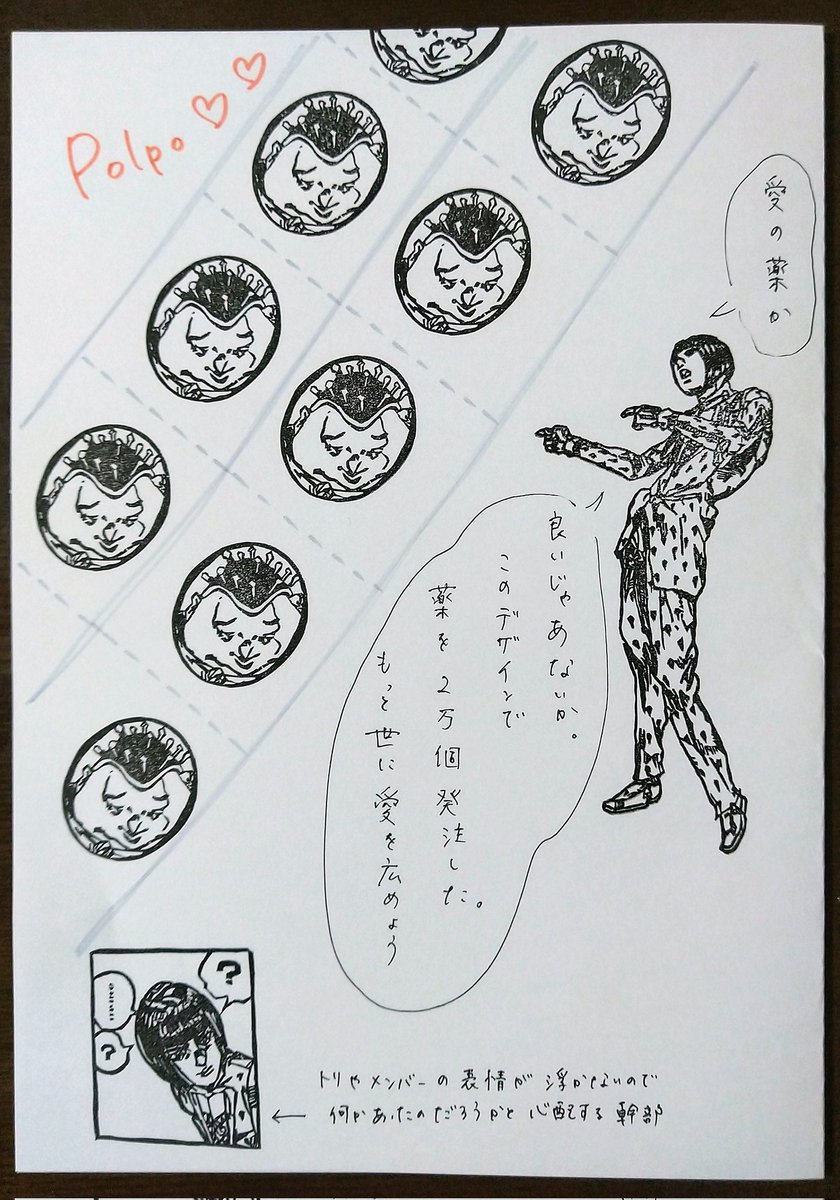 Polpo♡♡
愛の薬か
良いじゃあないか。
このデザインで
薬を2万個発注した。
もっと世に愛を広めよう
?
……
?
トリやメンバーの表情が浮かないので
← 何かあったのだろうかと心配する幹部